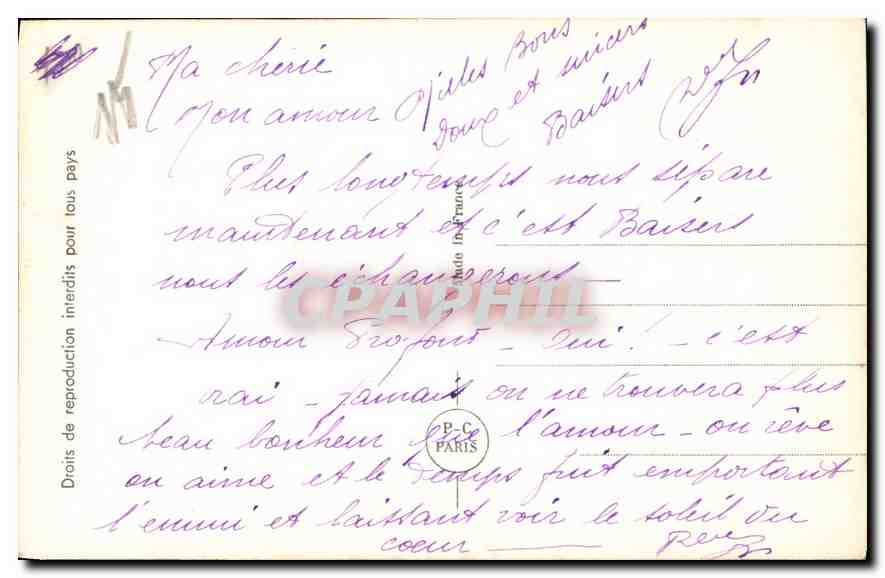 Ma chérie
Mon amour
Milles Bons
Doux et sincers
Baisers
Plus longtemps nous sépare
maintenant et c'est Baisers
nous les échangerons
Amour Profond - Oui ! - c'est
vrai - jamais on ne trouvera plus
beau bonheur que l'amour - on rêve
on aime et le temps fuit emportant
l'ennui et laissant voir le soleil du
coeur
Droits de reproduction interdits pour tous pays
Made in France
P-C
PARIS
CPAPHIL